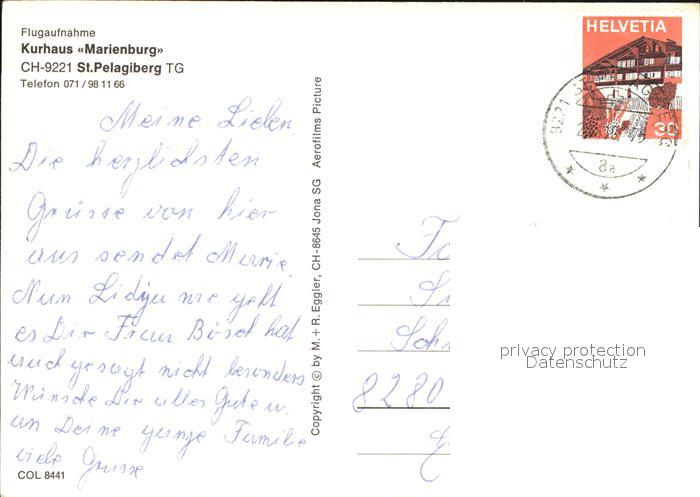 Flugaufnahme
Kurhaus «Marienburg»
CH-9221 St.Pelagiberg TG
Telefon 071/98 11 66
Meine Lieben,
Die herzlichsten
Grüsse von hier
aus sendet Marie.
Nun Lidju wie geht
es Dir Frau Bösch hat
auch gesagt nicht besonders
Wünsche Dir alles Gute u.
an Deine ganze Familie
viele Grüsse
COL 8441
Copyright © by M. + R. Eggler, CH-8645 Jona SG Aerofilms Picture
HELVETIA
30
9221
8a
8280
privacy protection
Datenschutz